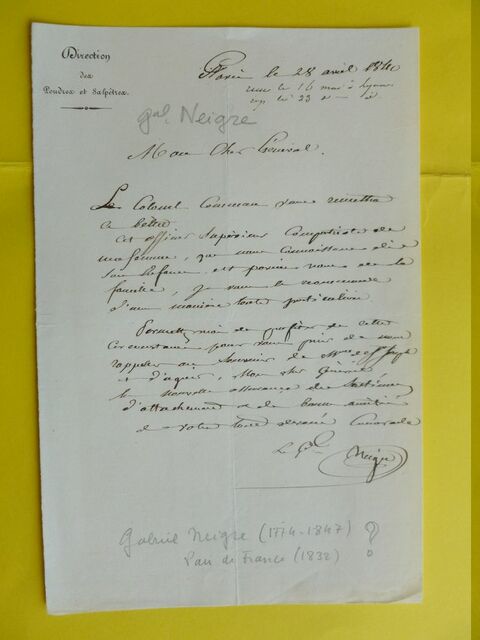 Direction
des
Poudres et Salpêtres.
Paris le 28 avril 1840
rue le 16 mai à Lyon
rep le 23
gal Neigre
Mon Cher Général.
Le Colonel vous remettra
ce lettre
Cet officier Supérieur Compatriote de
ma femme, que nous connaissons dès
son Enfance est pour nous de la
famille, je vous le recommande
d'une manière toute particulière
Permettez moi de profiter de cette
Circonstance pour vous prier de me
rappeler au Souvenir de Mme de St
et d'agréer, Mon cher Général
la nouvelle assurance des Sentimens
d'attachement & de bonne amitié
de votre tout dévoué Camarade
Le Gal
Neigre
Gabriel Neigre (1774-1847) ?
Pair de France (1832)